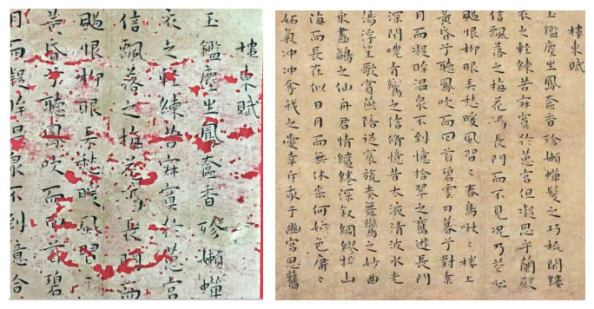 樓東賦
玉鑑塵生鳳奩香殄嬾蟬
衣之輕練苦寂寞於蕙宮
信飄落之梅花隔長門而
颺恨柳眼弄愁暖風習
黃昏兮聽鳳吹而回首碧
月而凝眸溫泉不到憶拾
樓東賦
玉鑑塵生鳳奩香殄嬾蟬鬢之巧梳閑縷
衣之輕練苦寂寞於蕙宮但凝思乎蘭殿
信飄落之梅花隔長門而不見況乃花心
颺恨柳眼弄愁暖風習〻春鳥啾〻樓上
黃昏兮聽鳳吹而回首碧雲日暮兮對素
月而凝眸溫泉不到憶拾翠之舊遊長門
深閉嗟青鸞之信脩憶昔太液清波水光
蕩浮笙歌賞燕陪從宸旒奏舞鸞之妙曲
乘畫鷁之仙舟君情繾綣深叙綢繆誓山
海而長在似日月而無休柰何嫉色庸〻
妬氣冲冲奪我之愛幸斥我於幽宮思舊